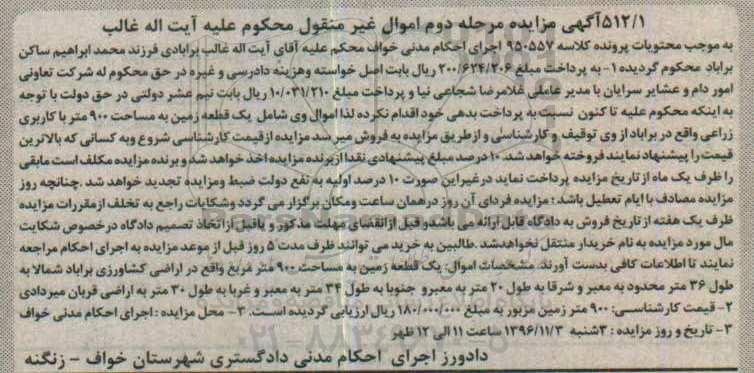 ۵۱۲/۱آگهی مزایده مرحله دوم اموال غیر منقول محکوم علیه آیت اله غالب
به موجب محتویات پرونده کلاسه ۹۵۰۵۵۷ اجرای احکام مدنی خواف محکم علیه آقای آیت اله غالب برابادی فرزند محمد ابراهیم ساکن
براباد محکوم گردیده ۱- به پرداخت مبلغ ۲۰۰/۶۲۴/۲۰۶ ریال بابت اصل خواسته وهزینه دادرسی و غیره در حق محکوم له شرکت تعاونی
امور دام و عشایر سرایان با مدیر عاملی غلامرضا شجاعی نیا و پرداخت مبلغ ۱۰/۰۳۱/۲۱۰ ریال بابت نیم عشر دولتی در حق دولت با توجه
به اینکه محکوم علیه تا کنون نسبت به پرداخت بدهی خود اقدام نکرده لذا اموال وی شامل یک قطعه زمین به مساحت ۹۰۰ متر با کاربری
زراعی واقع در براباد از وی توقیف و کارشناسی و ازطریق مزایده به فروش میرسد مزایده ازقیمت کارشناسی شروع وبه کسانی که بالاترین
قیمت را پیشنهاد نمایند فروخته خواهد شد. ۱۰ درصد مبلغ پیشنهادی نقدا ازبرنده مزایده اخذ خواهد شد و برنده مزایده مکلف است مابقی
را ظرف یک ماه از تاریخ مزایده پرداخت نماید درغیراین صورت ۱۰ درصد اولیه به نفع دولت ضبط ومزایده تجدید خواهد شد .چنانچه روز
مزایده مصادف با ایام تعطیل باشد؛ مزایده فردای آن روز درهمان ساعت ومکان برگزار می گردد وشکایات راجع به تخلف ازمقررات مزایده
ظرف یک هفته از تاریخ فروش به دادگاه قابل ارائه می باشدو قبل ازانقضای مهلت مذکور و یاقبل ازاتخاذ تصمیم دادگاه درخصوص شکایت
مال مورد مزایده به نام خریدار منتقل نخواهدشد .طالبین به خرید می توانند ظرف مدت ۵ روز قبل از موعد مزایده به اجرای احکام مراجعه
نمایند تا اطلاعات کافی بدست آورند. مشخصات اموال: یک قطعه زمین به مساحت ۹۰۰ متر مربع واقع در اراضی کشاورزی براباد شمالا به
طول ۳۶ متر محدود به معبر و شرقا به طول ۲۰ متر به معبرو جنوبا به طول ۳۴ متر به معبر و غربا به طول ۳۰ متر به اراضی قربان میردادی
۲- قیمت کارشناسی: ۹۰۰ متر زمین مزبور به مبلغ ۱۸۰/۰۰۰/۰۰۰ ریال ارزیابی گردیده است. ۳- محل مزایده : اجرای احکام مدنی خواف
۳- تاریخ و روز مزایده : ۳شنبه ۱۳۹۶/۱۱/۳ ساعت ۱۱ الی ۱۲ ظهر
دادورز اجرای احکام مدنی دادگستری شهرستان خواف - زنگنه